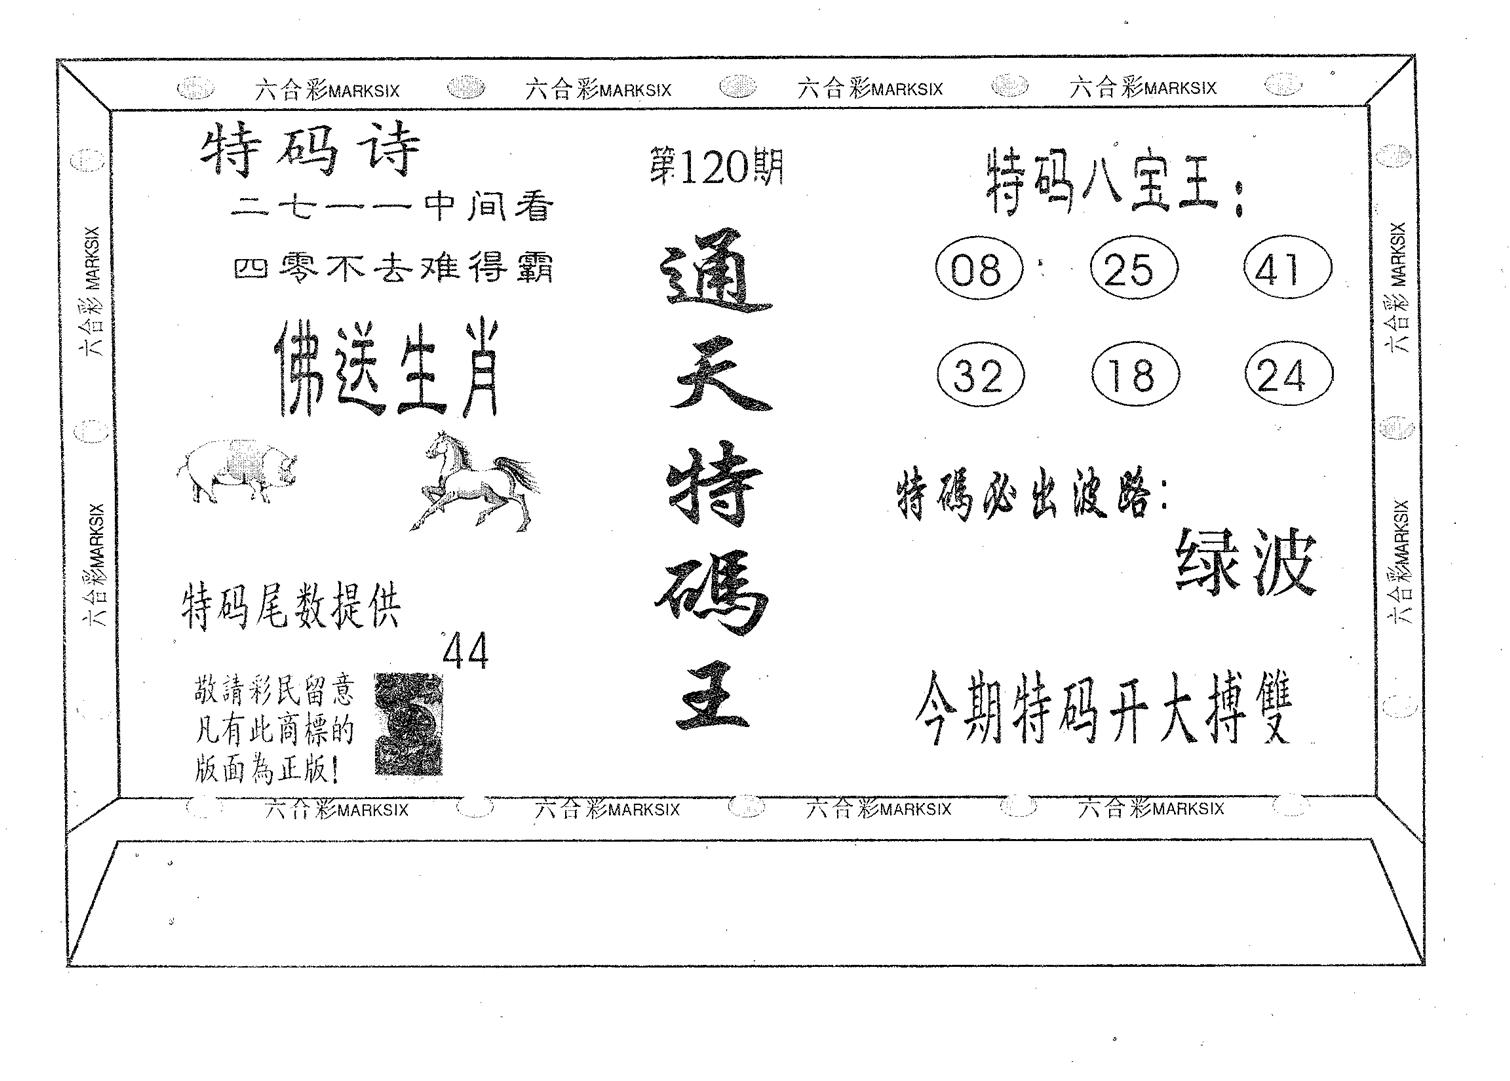 六合彩MARKSIX 六合彩MARKSIX 六合彩MARKSIX 六合彩MARKSIX
特码诗
二七一一中间看
四零不去难得霸
佛送生肖
特码尾数提供
44
敬請彩民留意
凡有此商標的
版面為正版!
第120期
通天特碼王
特码八宝王:
08 25 41
32 18 24
特碼必出波路:
绿波
今期特码开大搏雙
六合彩 MARKSIX
六合彩MARKSIX
六合彩 MARKSIX
六合彩MARKSIX
六合彩MARKSIX 六合彩MARKSIX 六合彩MARKSIX 六合彩MARKSIX